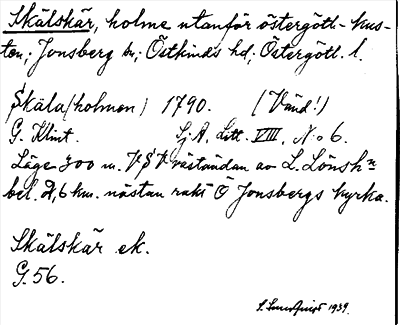 Skälskär, holme utanför östergötl. kus-
ten; Jonsberg sn; Östkinds hd; Östergötl. l.
Skäla/holmen/ 1790. (Vänd!)
G. Klint. Sj. A, Litt. VIII, No 6.
Läge 300 m. VSV västudden av L. Lönshn
bel. 2,6 km. nästan rakt Ö Jonsbergs kyrka.
Skälskär ek.
G. 56.
1939.